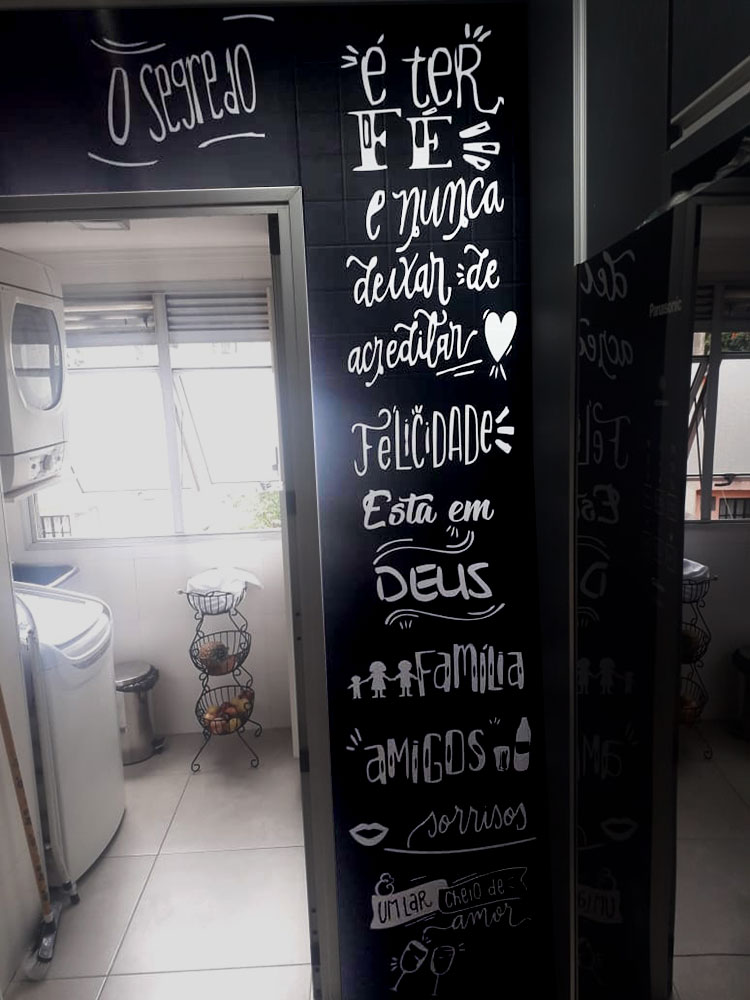 O segredo
é ter
FÉ
e nunca
deixar de
acreditar
FELICIDADE
Está em
DEUS
FAMÍLIA
AMIGOS
sorrisos
UM LAR cheio de
amor
Panasonic